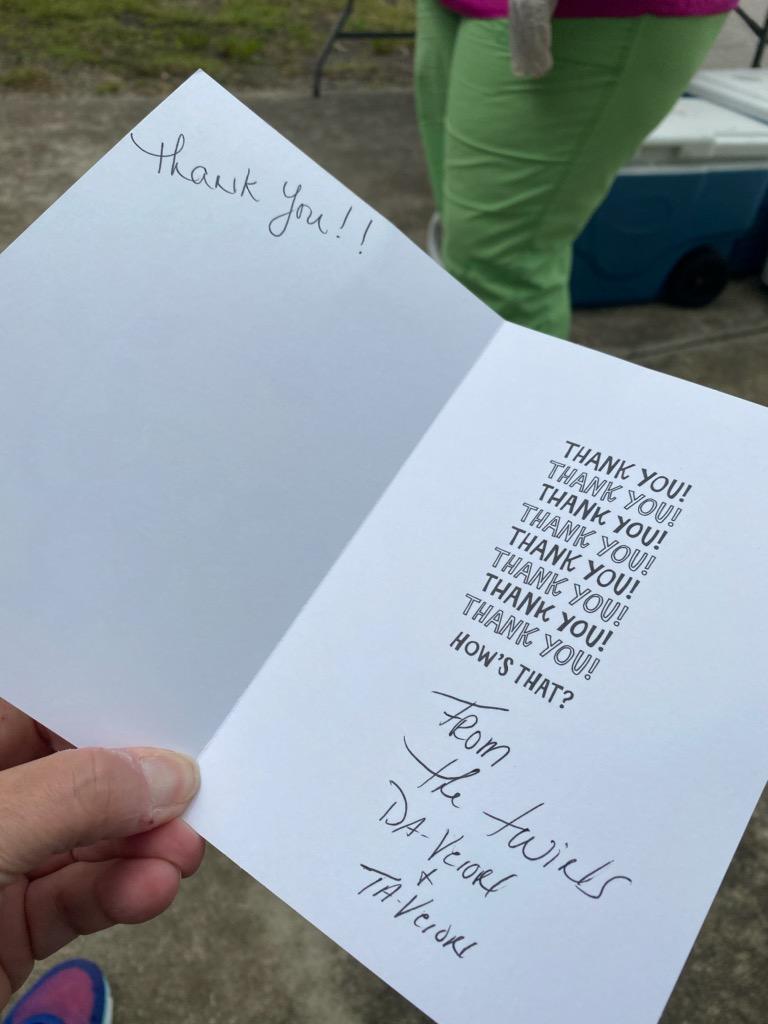 Thank You!!
THANK YOU!
THANK YOU!
THANK YOU!
THANK YOU!
THANK YOU!
THANK YOU!
THANK YOU!
THANK YOU!
HOW'S THAT?
From
the twins
DA-
+
TA-